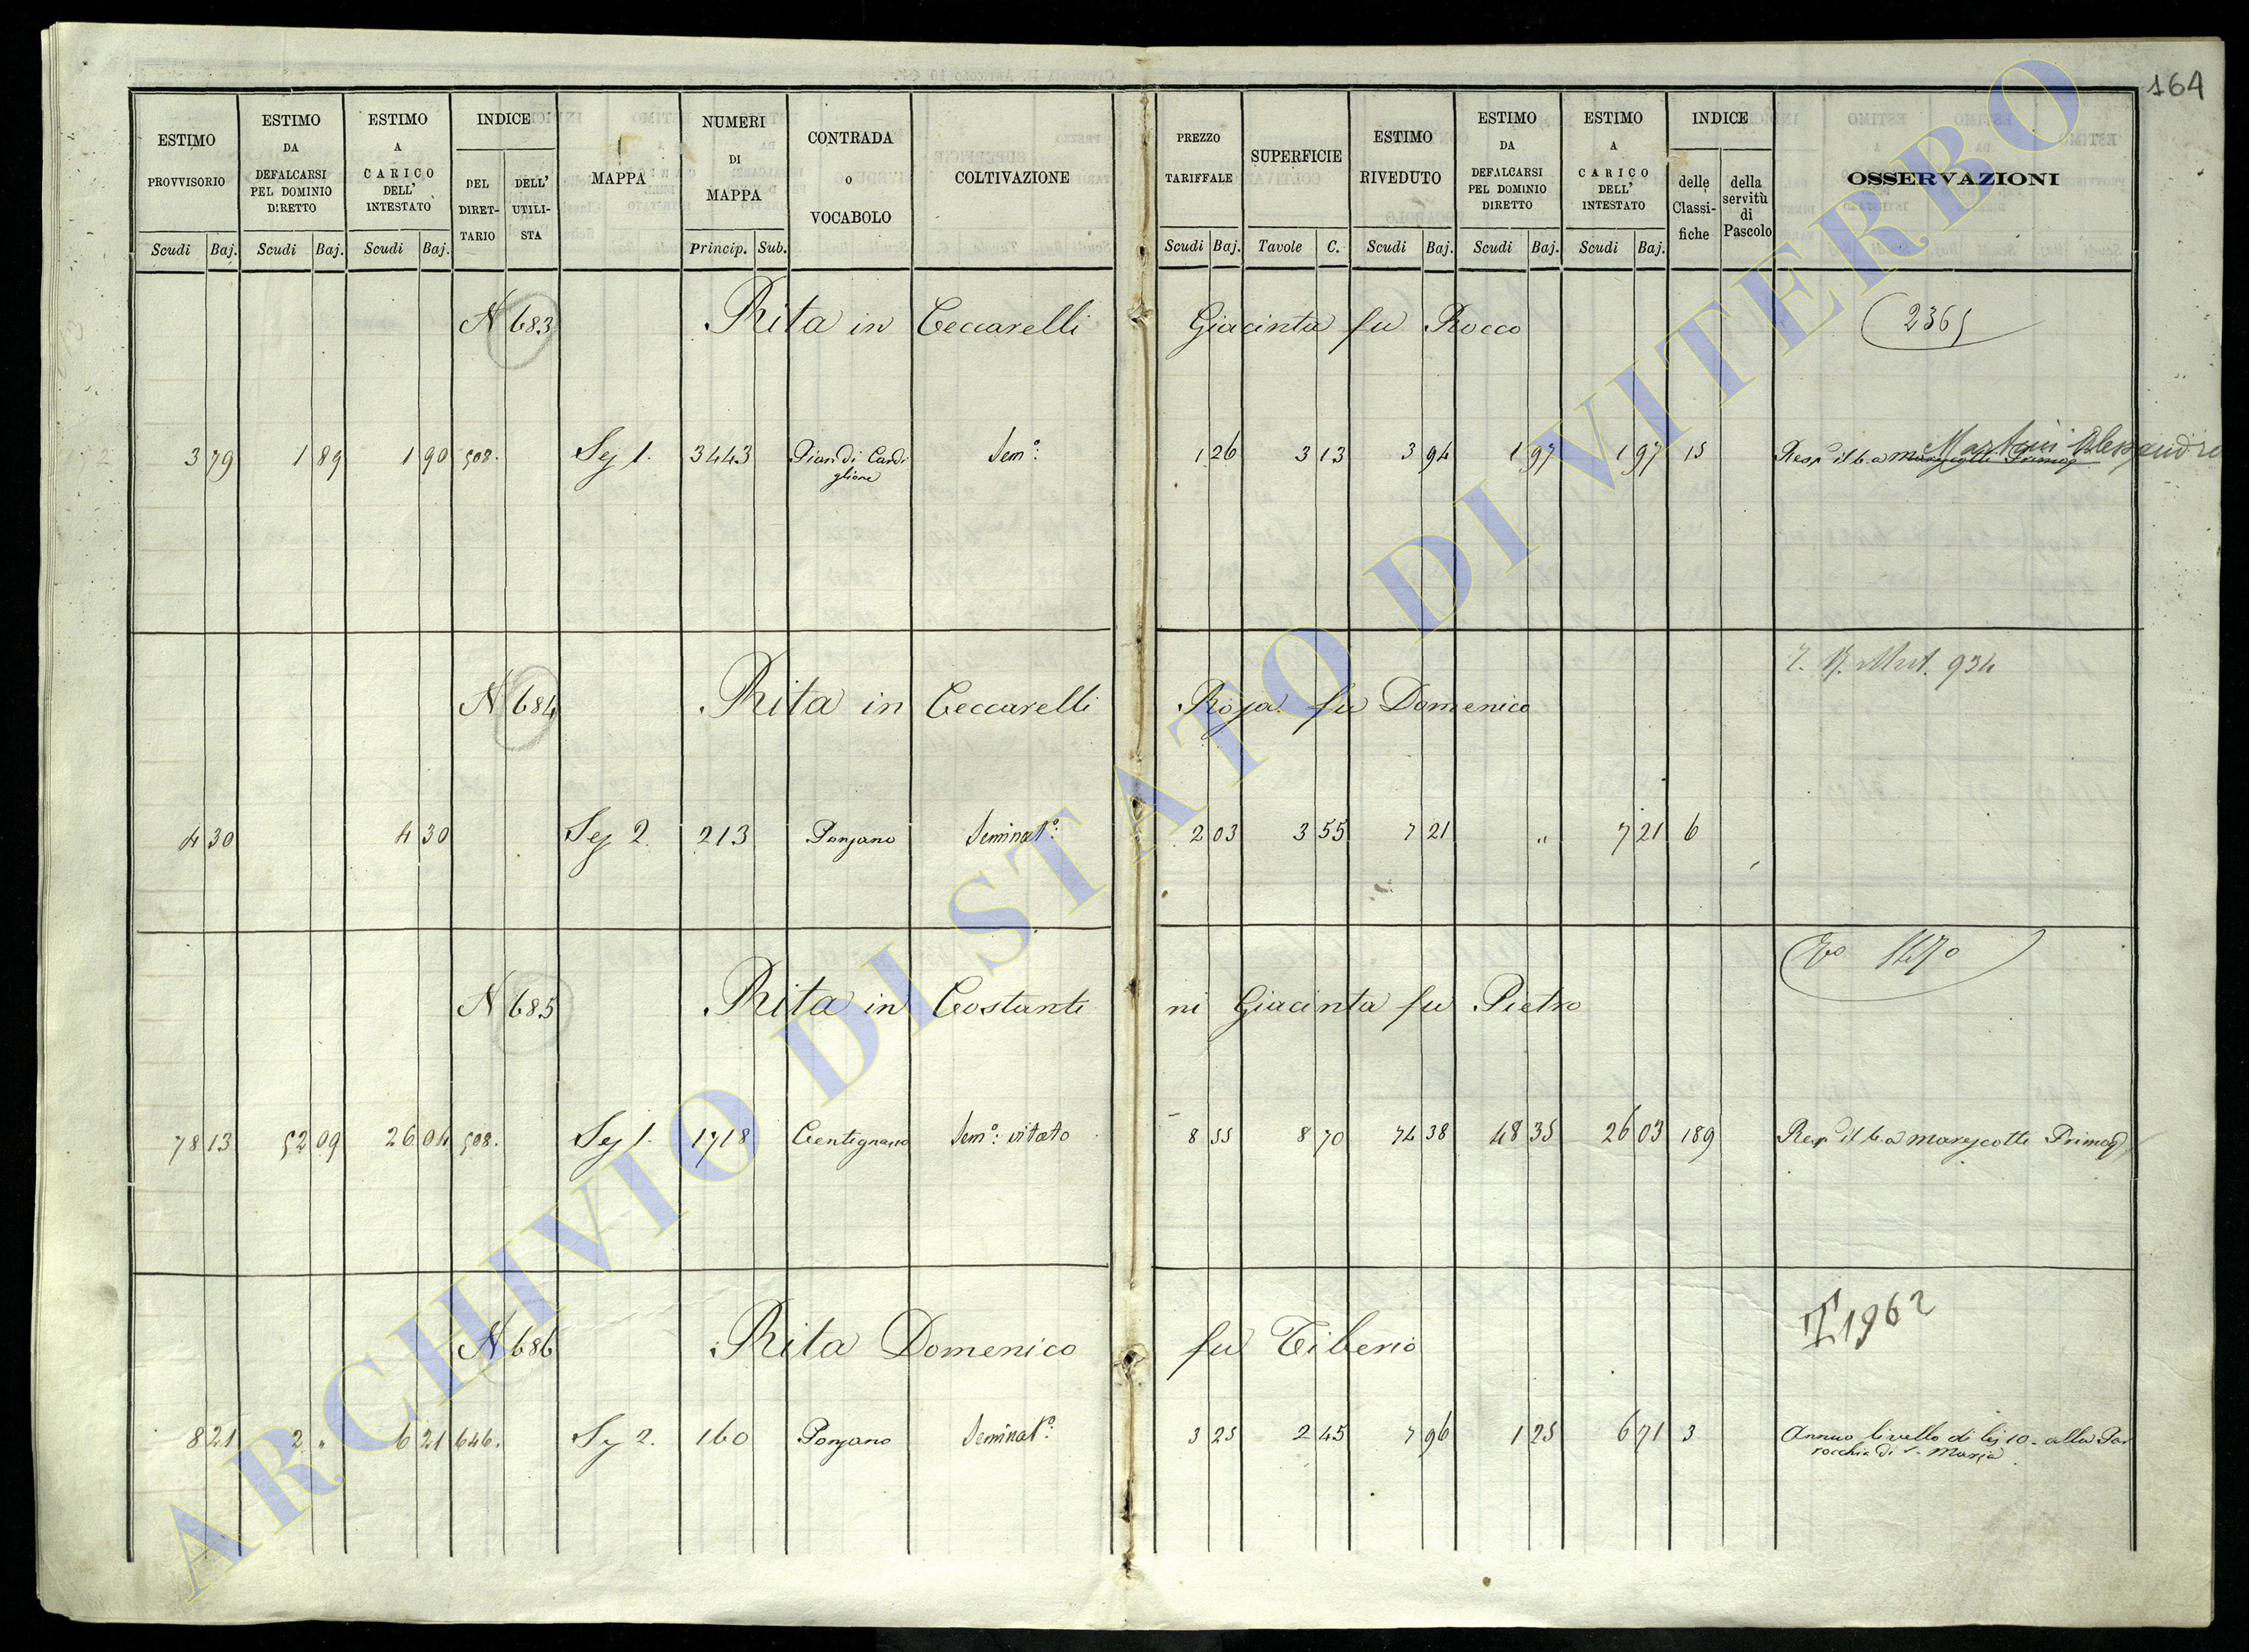 164
ESTIMO PROVVISORIO Scudi Baj.
ESTIMO DA DEFALCARSI PEL DOMINIO DIRETTO Scudi Baj.
ESTIMO A CARICO DELL' INTESTATO Scudi Baj.
INDICE DEL DIRETTARIO DELL' UTILISTA
MAPPA
NUMERI DI MAPPA Princip. Sub.
CONTRADA o VOCABOLO
COLTIVAZIONE
PREZZO TARIFFALE Scudi Baj.
SUPERFICIE Tavole C.
ESTIMO RIVEDUTO Scudi Baj.
ESTIMO DA DEFALCARSI PEL DOMINIO DIRETTO Scudi Baj.
ESTIMO A CARICO DELL' INTESTATO Scudi Baj.
INDICE delle Classifiche della servitù di Pascolo
OSSERVAZIONI
N 683 Rita in Ceccarelli Giacinta fu Rocco 2365
3 79 1 89 1 90 508. Sez 1. 3443 Pian di Cardiglione Sem.º 1 26 3 13 3 94 1 97 1 97 15 Martini Alessandro
Mut. 934
N 684 Rita in Ceccarelli Rosa fu Domenico
4 30 4 30 Sez 2. 213 Ponzano Seminat.º 2 03 3 55 7 21 " 7 21 6
N 685 Rita in Costantini Giacinta fu Pietro
78 13 52 09 26 04 508. Sez 1. 1718 Centignano Sem.º vitato 8 55 8 70 74 38 48 35 26 03 189 Marescotti
N 686 Rita Domenico fu Tiberio 1962
8 21 2 " 6 21 646. Sez 2. 160 Ponzano Seminat.º 3 25 2 45 7 96 1 25 6 71 3 Annuo livello di 10. alla Parrocchia di S. Maria
ARCHIVIO DI STATO DI VITERBO